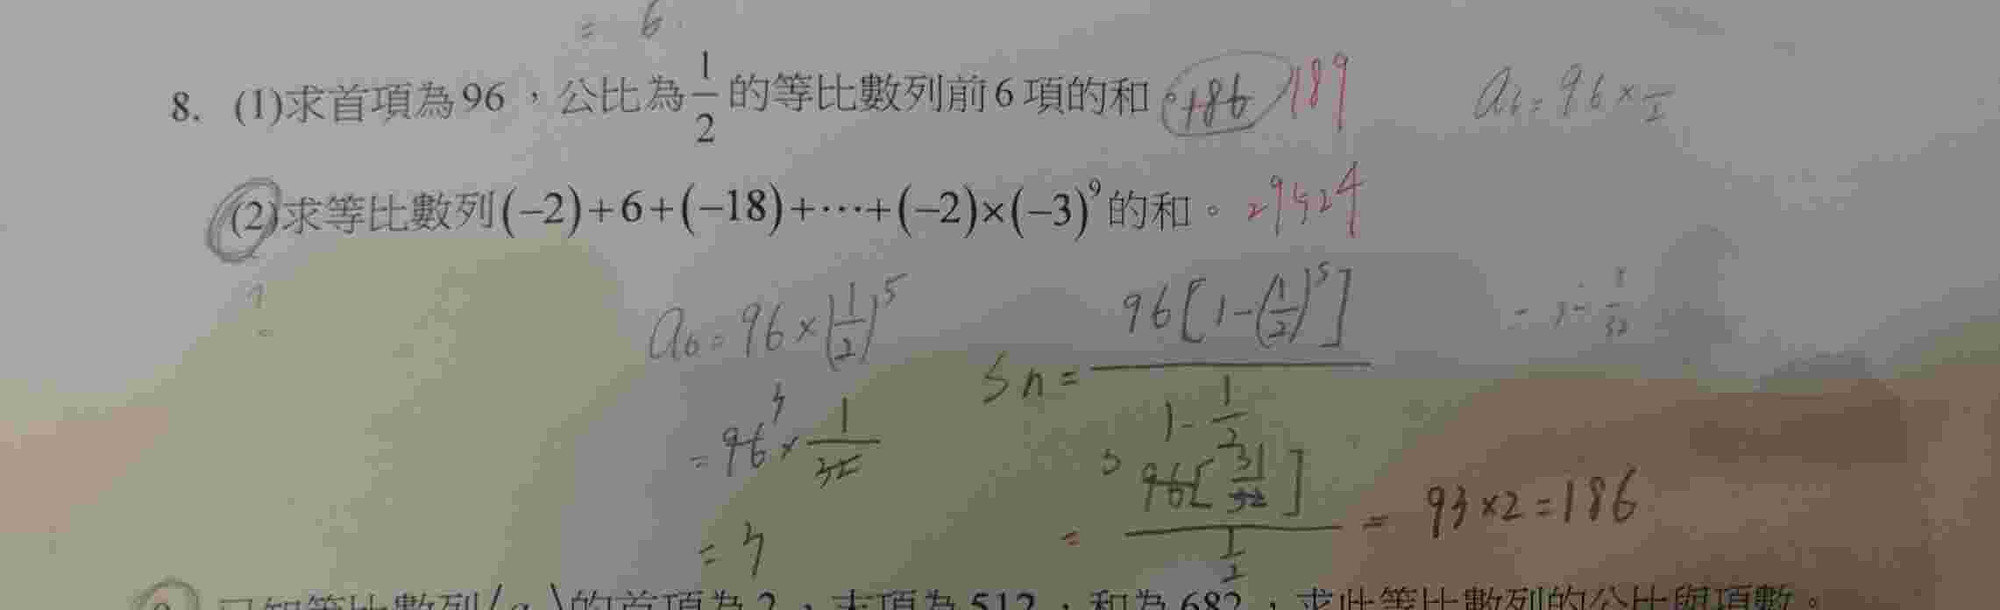 = 6
8. (1)求首項為96，公比為1/2的等比數列前6項的和。186 189
a₆ = 96 × 1/2
(2)求等比數列(−2)+6+(−18)+⋯+(−2)×(−3)⁹的和。29524
?
a₆ = 96 × (1/2)⁵
= 96 × 1/32
= 3
Sn = 96[1-(1/2)⁵] / 1-1/2
= 96[31/32] / 1/2 = 93×2=186
已知等比數列⟨aₙ⟩的首項為2，末項為512，和為682，求此等比數列的公比與項數。